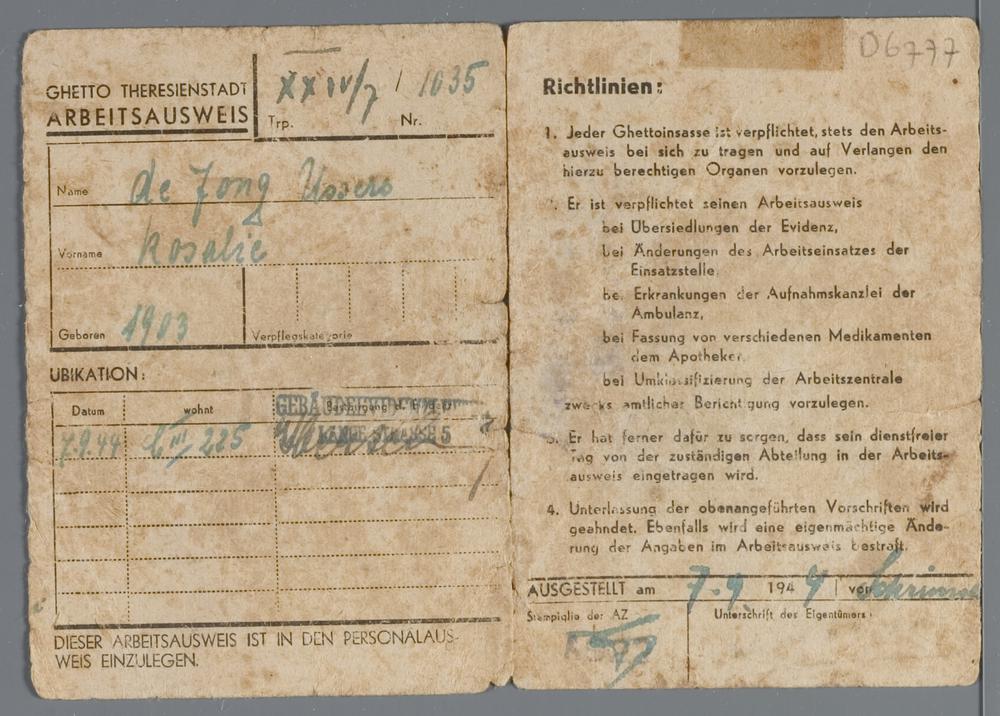 GHETTO THERESIENSTADT
ARBEITSAUSWEIS
XXIV/7 / 1035
Trp. Nr.
Name de Jong Ussers
Vorname Rosalie
Geboren 1903 Verpflegskategorie
UBIKATION:
Datum wohnt
7.9.44 L III/225 LANGE STRASSE 5
DIESER ARBEITSAUSWEIS IST IN DEN PERSONALAUS-
WEIS EINZULEGEN.
D6777
Richtlinien:
1. Jeder Ghettoinsasse ist verpflichtet, stets den Arbeits-
ausweis bei sich zu tragen und auf Verlangen den
hierzu berechtigen Organen vorzulegen.
Er ist verpflichtet seinen Arbeitsausweis
bei Übersiedlungen der Evidenz,
bei Änderungen des Arbeitseinsatzes der
Einsatzstelle,
bei Erkrankungen der Aufnahmskanzlei der
Ambulanz,
bei Fassung von verschiedenen Medikamenten
dem Apotheker,
bei Umklassifizierung der Arbeitszentrale
zwecks amtlicher Berichtigung vorzulegen.
3. Er hat ferner dafür zu sorgen, dass sein dienstfreier
Tag von der zuständigen Abteilung in der Arbeits-
ausweis eingetragen wird.
4. Unterlassung der obenangeführten Vorschriften wird
geahndet. Ebenfalls wird eine eigenmächtige Ände-
rung der Angaben im Arbeitsausweis bestraft.
AUSGESTELLT am 7.9. 1944 von
Stampiglie der AZ Unterschrift des Eigentümers: